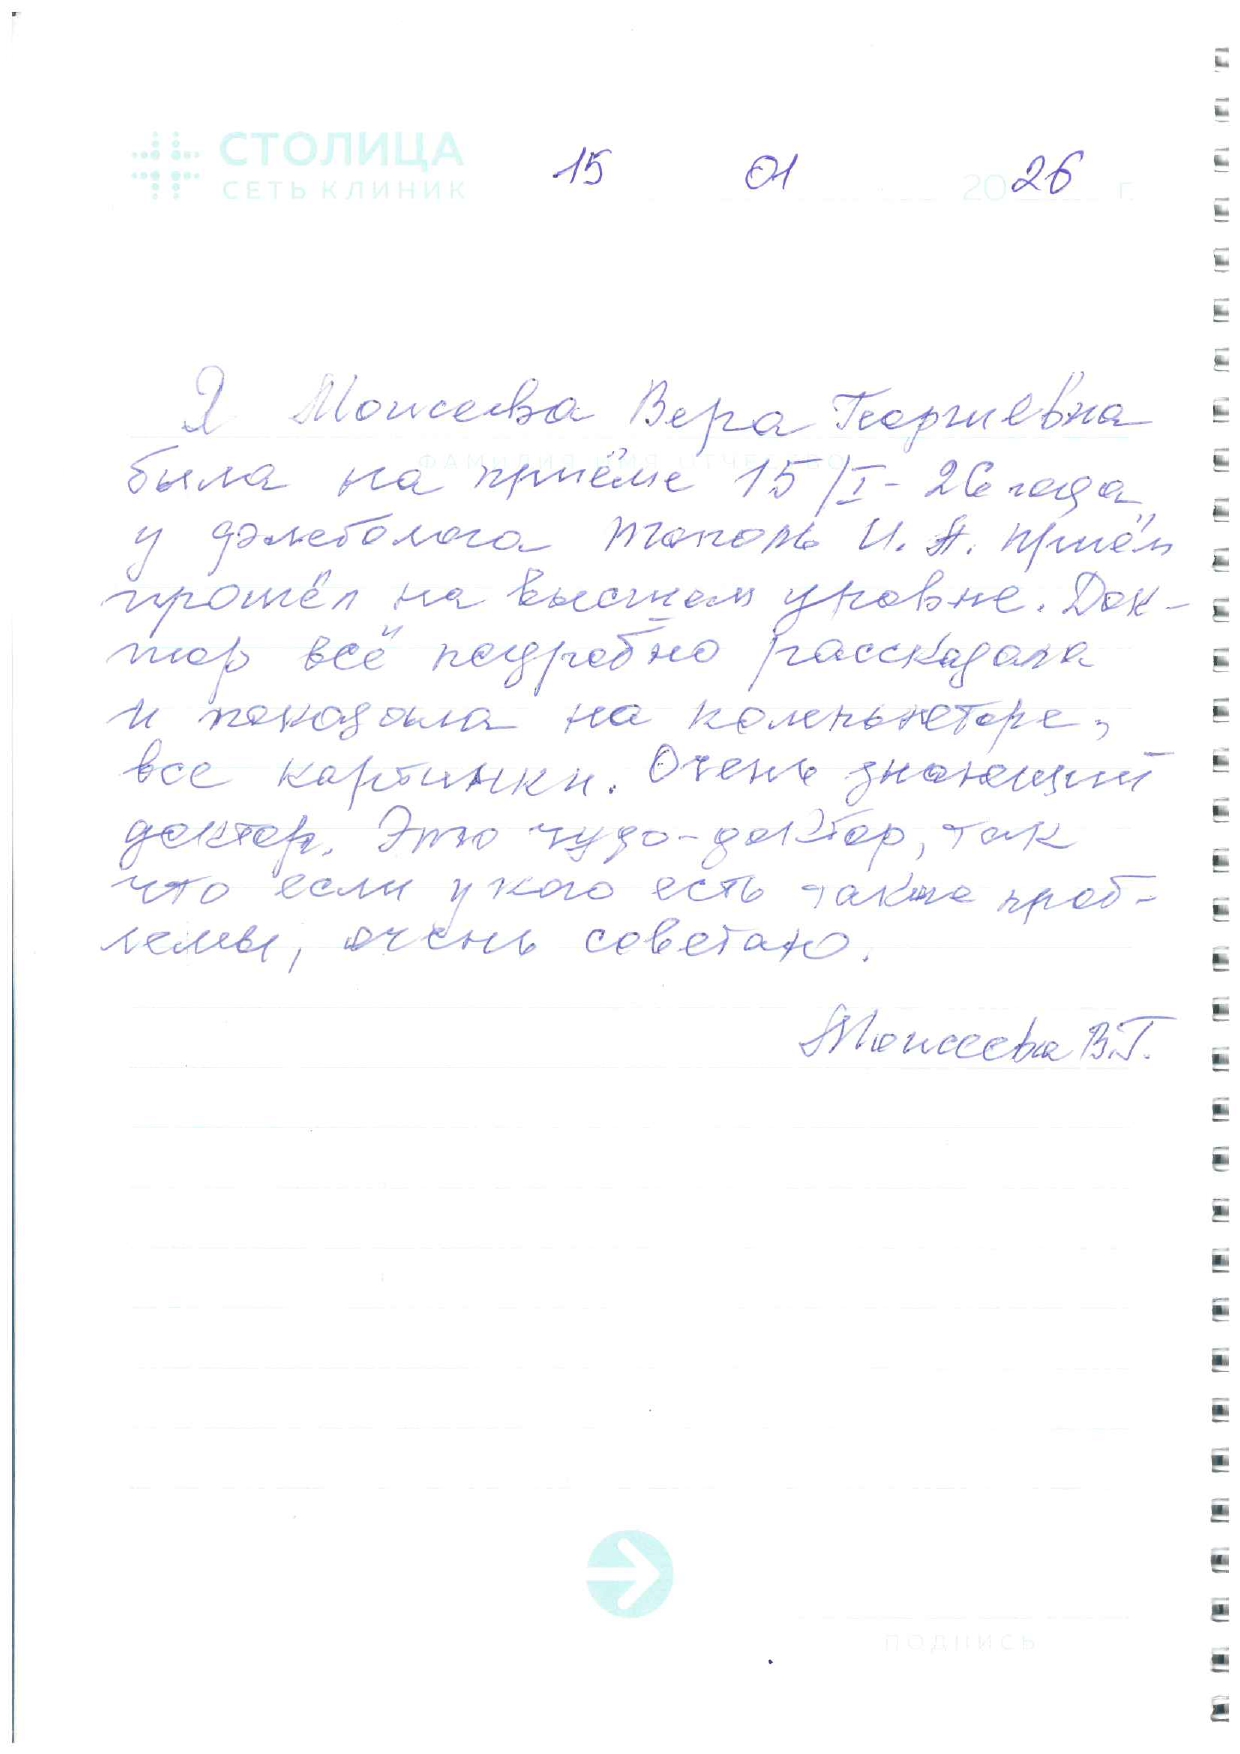 СТОЛИЦА
СЕТЬ КЛИНИК
15 01 2026 г.
Я Моисеева Вера Георгиевна
ФАМИЛИЯ ИМЯ ОТЧЕСТВО
была на приёме 15/I-26 года
у флеболога Тополь И. А. приём
прошёл на высшем уровне. Док-
тор всё подробно рассказала
и показала на компьютере,
все картинки. Очень знающий
доктор. Это чудо-доктор, так
что если у кого есть такие проб-
лемы, очень советаю.
Моисеева В.Г.
ПОДПИСЬ